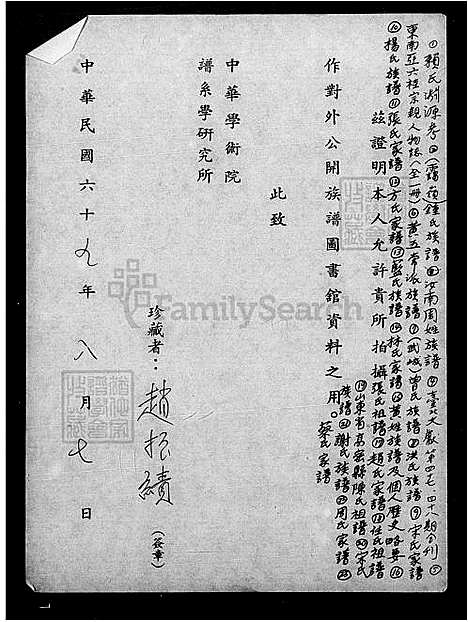 ①賴氏淵源考②(霞菊)鍾氏族譜③汝南周姓族譜④臺北文獻第四七、四十八期合刊⑤
東南亞六桂宗親人物誌(全一冊)⑥黃五常派族譜⑦(武城)曾氏族譜⑧洪氏族譜⑨宋氏家譜
⑩楊氏族譜⑪張氏家譜⑫方氏家譜⑬藍氏族譜⑭林氏家譜⑮黃姓族譜及個人歷史略要⑯
茲證明本人允許貴所拍攝張氏祖譜⑰趙氏家譜⑱任氏祖譜
⑲山東省高密縣陳氏祖譜⑳宋氏
族譜㉑謝氏族譜㉒周氏家譜㉓
蔡氏家譜
作對外公開族譜圖書館資料之用。
此致
中華學術院
譜系學研究所
珍藏者：趙振績(簽章)
中華民國六十九年八月七日
FamilySearch